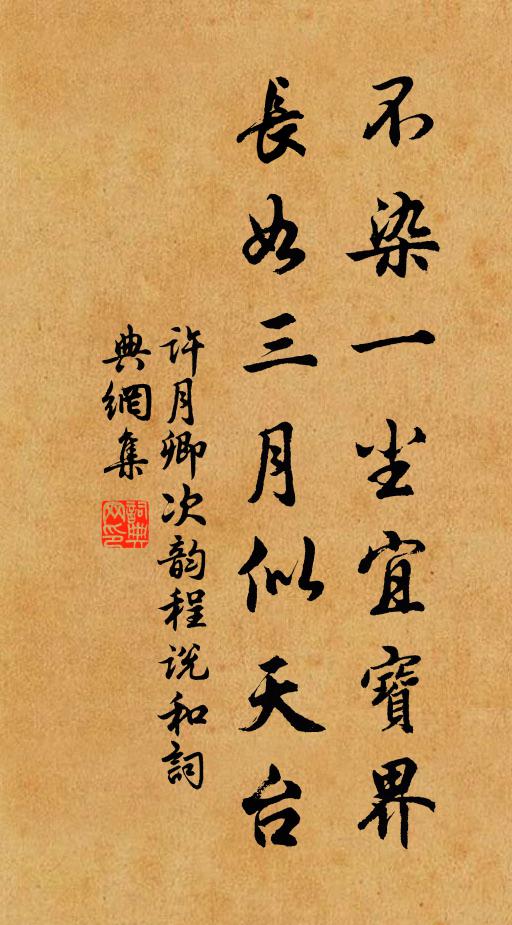 不染一尘宜寶界
長如三月似天台
許月卿次韵程説和詞
典網集
詞典網印